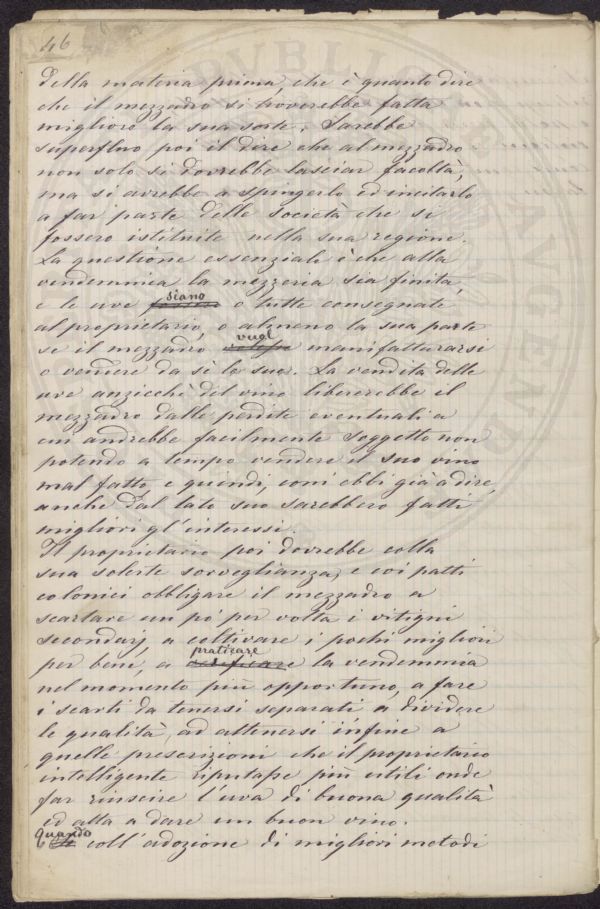 46
della materia prima, che è quanto dire
che il mezzadro si troverebbe fatta
migliore la sua sorte. Sarebbe
superfluo poi il dire che al mezzadro
non solo si dovrebbe lasciar facoltà,
ma si avrebbe a spingerlo ed incitarlo
a far parte delle società che si
fossero istituite nella sua regione.
La questione essenziale è che alla
vendemmia la mezzeria sia finita,
e le uve siano o tutte consegnate
al proprietario, o almeno la sua parte
se il mezzadro vuol manifatturarsi
o vendere da sè le sue. La vendita delle
uve anzicchè del vino libererebbe il
mezzadro dalle perdite eventuali a
cui andrebbe facilmente soggetto non
potendo a tempo vendere il suo vino
mal fatto, e quindi, com'ebbi già a dire,
anche dal lato suo sarebbero fatti
migliori gl'interessi.
Il proprietario poi dovrebbe colla
sua solerte sorveglianza, e coi patti
colonici obbligare il mezzadro a
scartare un pó per volta i vitigni
secondarj, a coltivare i pochi migliori
per bene, a praticare la vendemmia
nel momento più opportuno, a fare
i scarti da tenersi separati a dividere
le qualità, ad attenersi infine a
quelle prescrizioni che il proprietario
intelligente riputasse più utili onde
far riuscire l'uva di buona qualità
ed atta a dare un buon vino.
Quando coll'adozione di migliori metodi